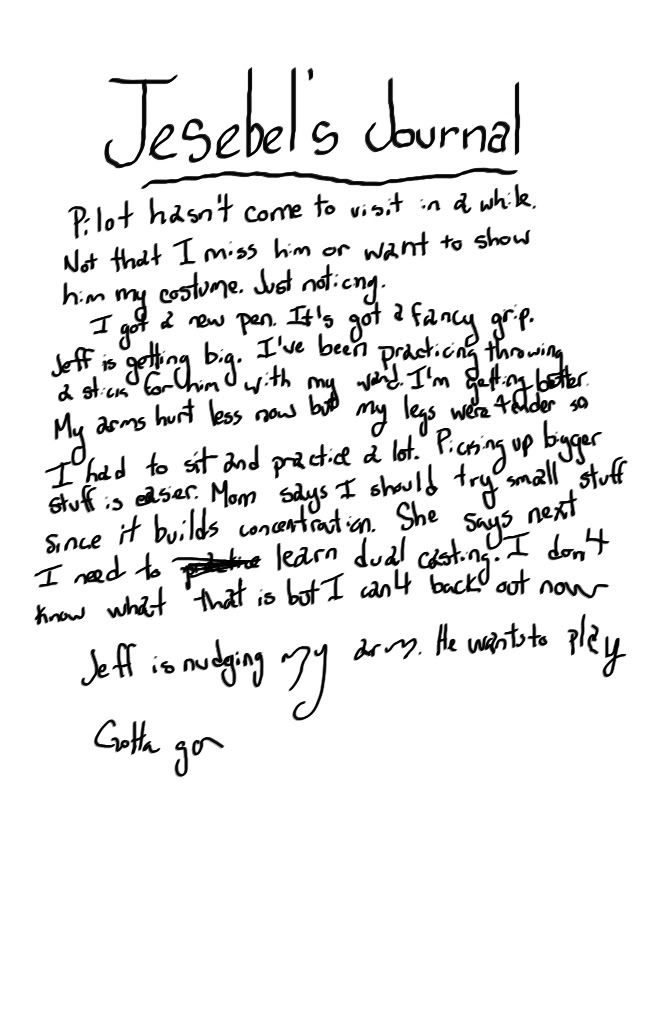 Jesebel's Journal
Pilot hasn't come to visit in a while.
Not that I miss him or want to show
him my costume. Just noticng.
I got a new pen. It's got a fancy grip.
Jeff is getting big. I've been practicing throwing
a stick for him with my wand. I'm getting better.
My arms hurt less now but my legs were tender so
I had to sit and practice a lot. Picking up bigger
stuff is easier. Mom says I should try small stuff
since it builds concentration. She says next
I need to practice learn dual casting. I don't
know what that is but I can't back out now
Jeff is nudging my arm. He wants to play
Gotta go